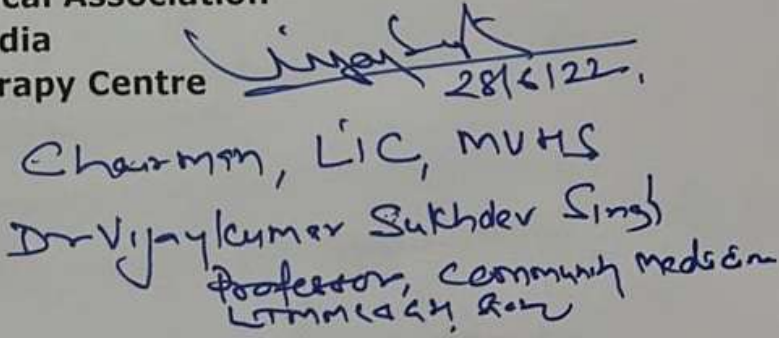 cal Association
dia
rapy Centre
28/6/22.
Chairman, LIC, MUHS
Dr Vijaykumar Sukhdev Singh
Professor, Community Medicine
LTMMC&GH,